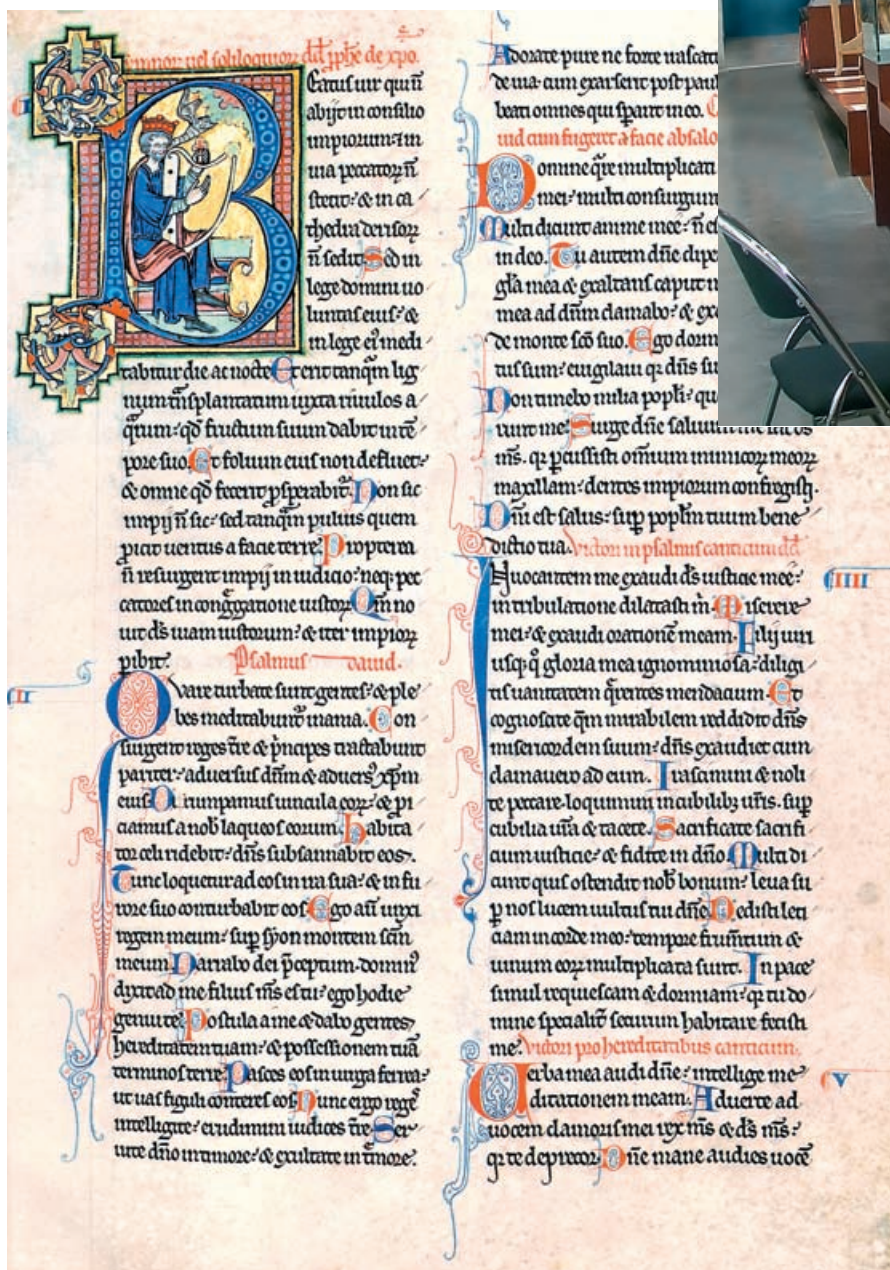 B
eatus uir qui n̄
abijt in consilio
impiorum: & in
uia peccatoꝝ n̄
stetit: & in ca
thedra derisoꝝ
n̄ sedit. Sed in
lege domini uo
luntas eius: &
in lege ei᷒ medi
tabitur die ac nocte. Et erit tanq̄m lig
num t̄nsplantatum iuxta riuulos a
q̄rum: qd̄ fructum suum dabit in tē
pore suo. Et folium eius non defluet:
& omne qd̄ fecerit ꝓsperabit᷑. Non sic
impij n̄ sic: sed tanq̄m puluis quem
ꝓicit uentus a facie terre. Propterea
n̄ resurgent impij in iudicio: neqꝫ pec
catores in congregatione iustoꝝ. Qm̄ no
uit dn̄s uiam iustorum: & iter impioꝝ
ꝑibit.
Psalmus dauid.
II
Quare turbate sunt gentes: & ple
bes meditabunt᷑ inania. Con
surgent reges tr̄e & p̄ncipes tractabunt
pariter: aduersus dn̄m & aduers᷒ xp̄m
eius. Dirumpamus uincula eoꝝ: & pi
ciamus a nob̄ laqueos eorum. Habita
tor celi ridebit: dn̄s subsannabit eos.
Tunc loquetur ad eos in ira sua: & in fu
rore suo conturbabit eos. Ego aūt unxi
regem meum: suꝑ syon montem scm̄
meum. Narrabo dei p̄ceptum. domin᷒
dixit ad me filius ms̄ es tu: ego hodie
genui te. Postula a me & dabo gentes
hereditatem tuam: & possessionem tuā
terminos terre. Pasces eos in uirga ferrea:
ut uas figuli conteres eos. Nunc ergo reges
intelligite: erudimini iudices tr̄e. Ser
uite dn̄o in timore: & exultate in t̄more.
Adorate pure ne forte
de uia. cum exarserit post
beati omnes qui sꝑant in eo.
cum fugeret a facie
Domine q̄re multiplicati
mei: multi consurgunt
Multi dicunt anime mee: n̄
in deo. Tu autem dn̄e
gl̄a mea & exaltans caput
mea ad dn̄m clamabo: &
de monte scō suo. Ego
tus sum: euigilaui qr dn̄s
Non timebo milia popl̄i:
runt me. Surge dn̄e
ms̄. qr ꝑcussisti omnium inimicoꝝ meoꝝ
maxillam: dentes impiorum confregisti.
Dn̄i est salus: suꝑ popl̄m tuum bene
dictio tua. Victori in psalmis canticum dd̄
IIII
Inuocantem me exaudi ds̄ iusticie mee:
in tribulatione dilatasti m̄. Miserere
mei: & exaudi orationē meam. Filij uiri
usq;q̊ gloria mea ignominiosa: diligi
tis uanitatem q̄rentes mendacium. Et
cognoscite qm̄ mirabilem reddidit dn̄s
misericordem suum: dn̄s exaudiet cum
clamauero ad eum. Irascimini & noli
te peccare. loquimini in cubilibꝫ ur̄is. suꝑ
cubilia ur̄a & tacete. Sacrificate sacrifi
cium iusticie: & fidite in dn̄o. Multi di
cunt quis ostendit nob̄ bonum: leua su
ꝑ nos lucem uultus tui dn̄e. Dedisti leti
ciam in corde meo: tempore frum̄tum &
uinum eoꝝ multiplicata sunt. In pace
simul requiescam & dormiam: qr tu do
mine specialit̄ securum habitare fecisti
me. Victori pro hereditatibus canticum.
V
Verba mea audi dn̄e: intellige me
ditationem meam. Aduerte ad
uocem clamoris mei rex ms̄ & ds̄ ms̄:
qr te deprecor. Dn̄e mane audies uocē